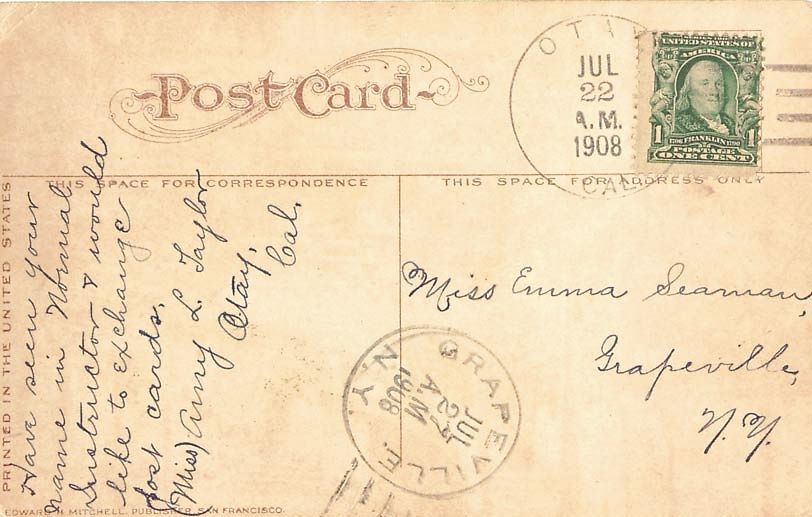 Post Card
OTAY
JUL
22
A.M.
1908
CAL.
UNITED STATES OF
AMERICA
1 1706 FRANKLIN 1790 1
POSTAGE
ONE CENT
THIS SPACE FOR CORRESPONDENCE
THIS SPACE FOR ADDRESS ONLY
PRINTED IN THE UNITED STATES
Have seen your
name in Normal
Instructor & would
like to exchange
post cards.
(Miss) Amy L. Taylor
Otay,
Cal.
Miss Emma Seaman,
Grapeville,
N.Y.
GRAPEVILLE
JUL
27
A.M
1908
N.Y.
EDWARD H. MITCHELL, PUBLISHER, SAN FRANCISCO.